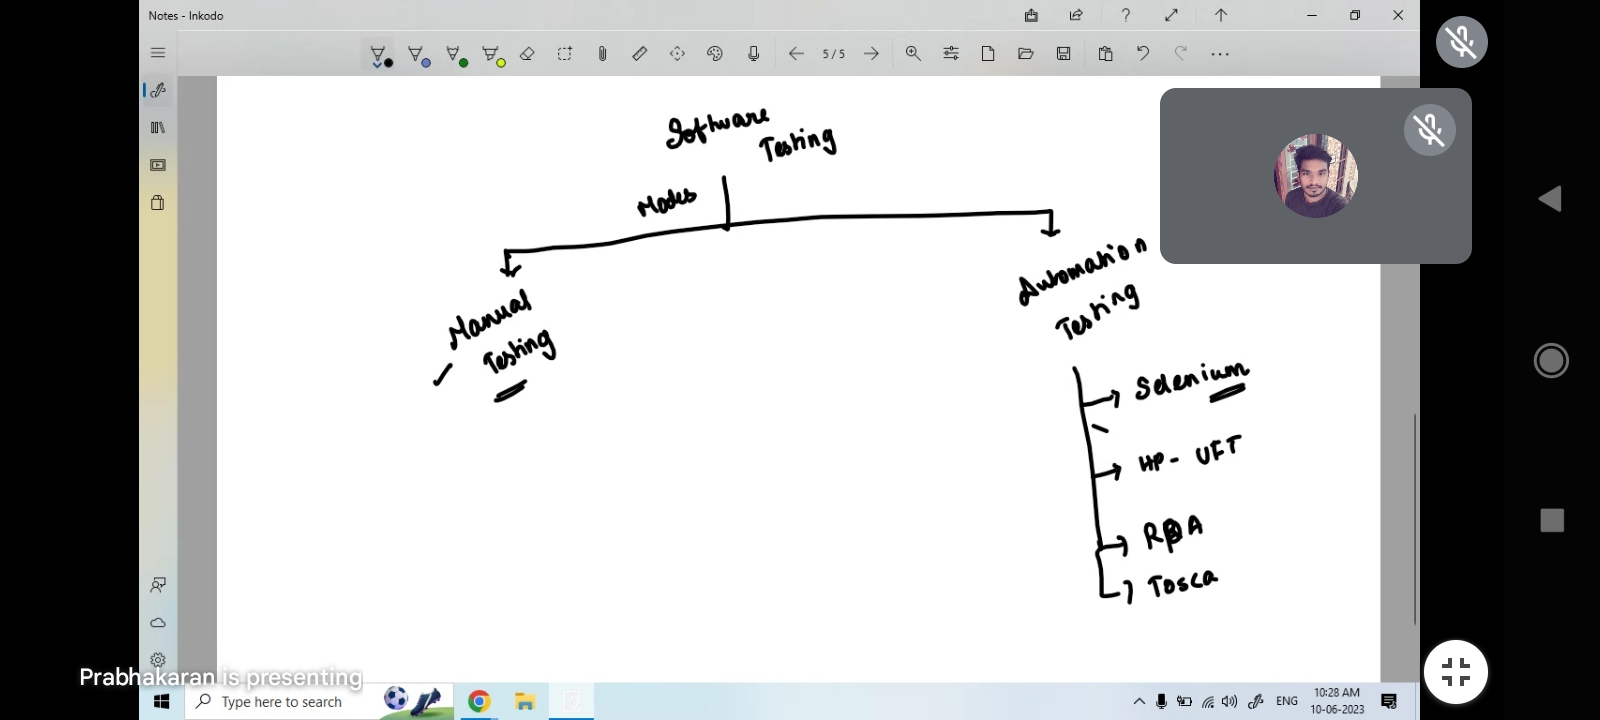 Notes - Inkodo
5 / 5
Software
Testing
Modes
Manual
Testing
Automation
Testing
Selenium
HP - UFT
RPA
Tosca
Prabhakaran is presenting
Type here to search
ENG
10:28 AM
10-06-2023